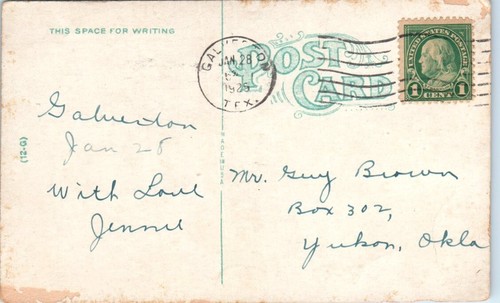 THIS SPACE FOR WRITING
POST CARD
GALVESTON
JAN 28
1925
TEX.
UNITED STATES POSTAGE
1 CENT 1
Galveston
Jan 28
With Love
Jennie
(12-G)
MADE IN USA
Mr. Guy Brown
Box 302,
Yukon, Okla